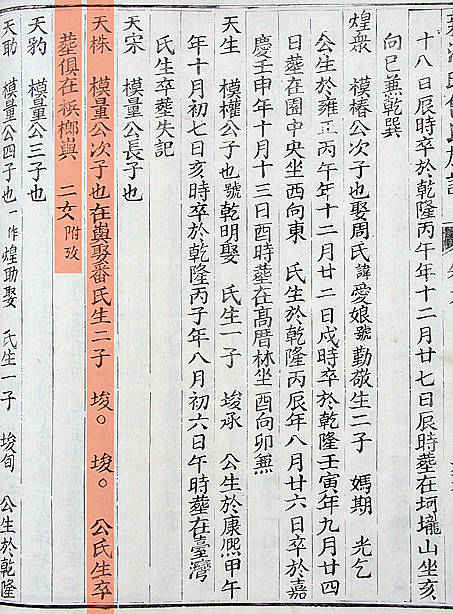 十八日辰時卒於乾隆丙午年十二月廿七日辰時塟在坷壠山坐亥
向巳兼乾巽
煌衆 模椿公次子也娶周氏諱愛娘號勤敬生二子 媽期 光乞
公生於雍正丙午年十二月廿二日戌時卒於乾隆壬寅年九月廿四
日塟在園中央坐西向東 氏生於乾隆丙辰年八月廿六日卒於嘉
慶壬申年十月十三日酉時塟在高厝林坐酉向卯兼
天生 模權公子也號乾明娶 氏生一子 埈承 公生於康熙甲午
年十月初七日亥時卒於乾隆丙子年八月初六日午時塟在臺灣
氏生卒塟失記
天宋 模量公長子也
天株 模量公次子也在與娶番氏生二子 埈○ 埈○ 公氏生卒
塟俱在檳榔與 二女附攷
天豹 模量公三子也
天助 模量公四子也一作煌助娶 氏生一子 埈旬 公生於乾隆